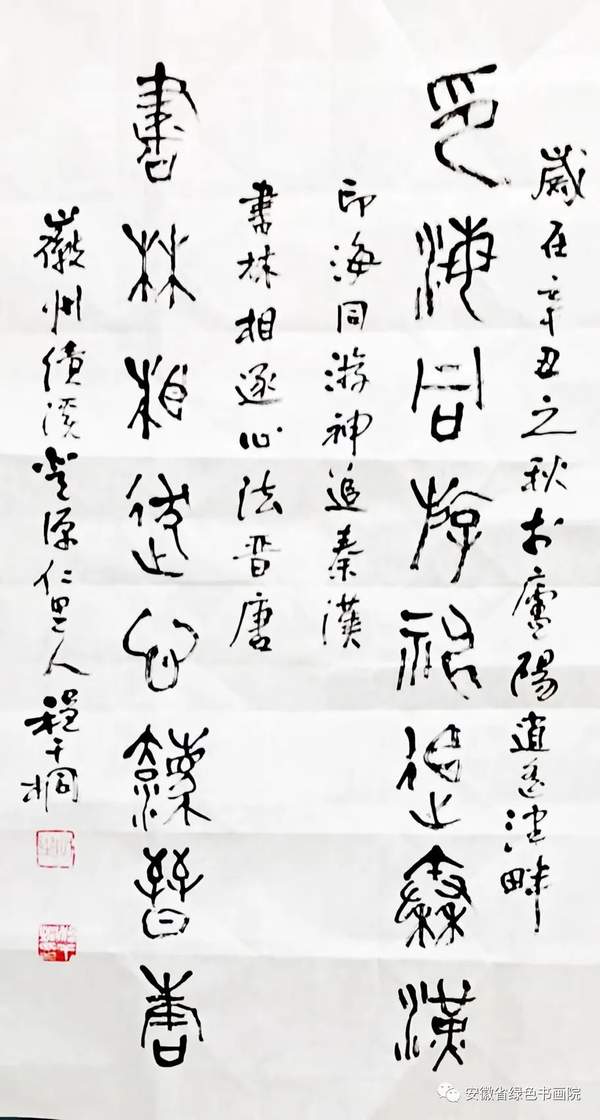 歲在辛丑之秋於廬陽逍遙津畔
印海同游神追秦漢
印海同游神追秦漢
書林相逐心法晋唐
書林相逐心法晉唐
徽州績溪登源仁里人程
安徽省绿色书画院